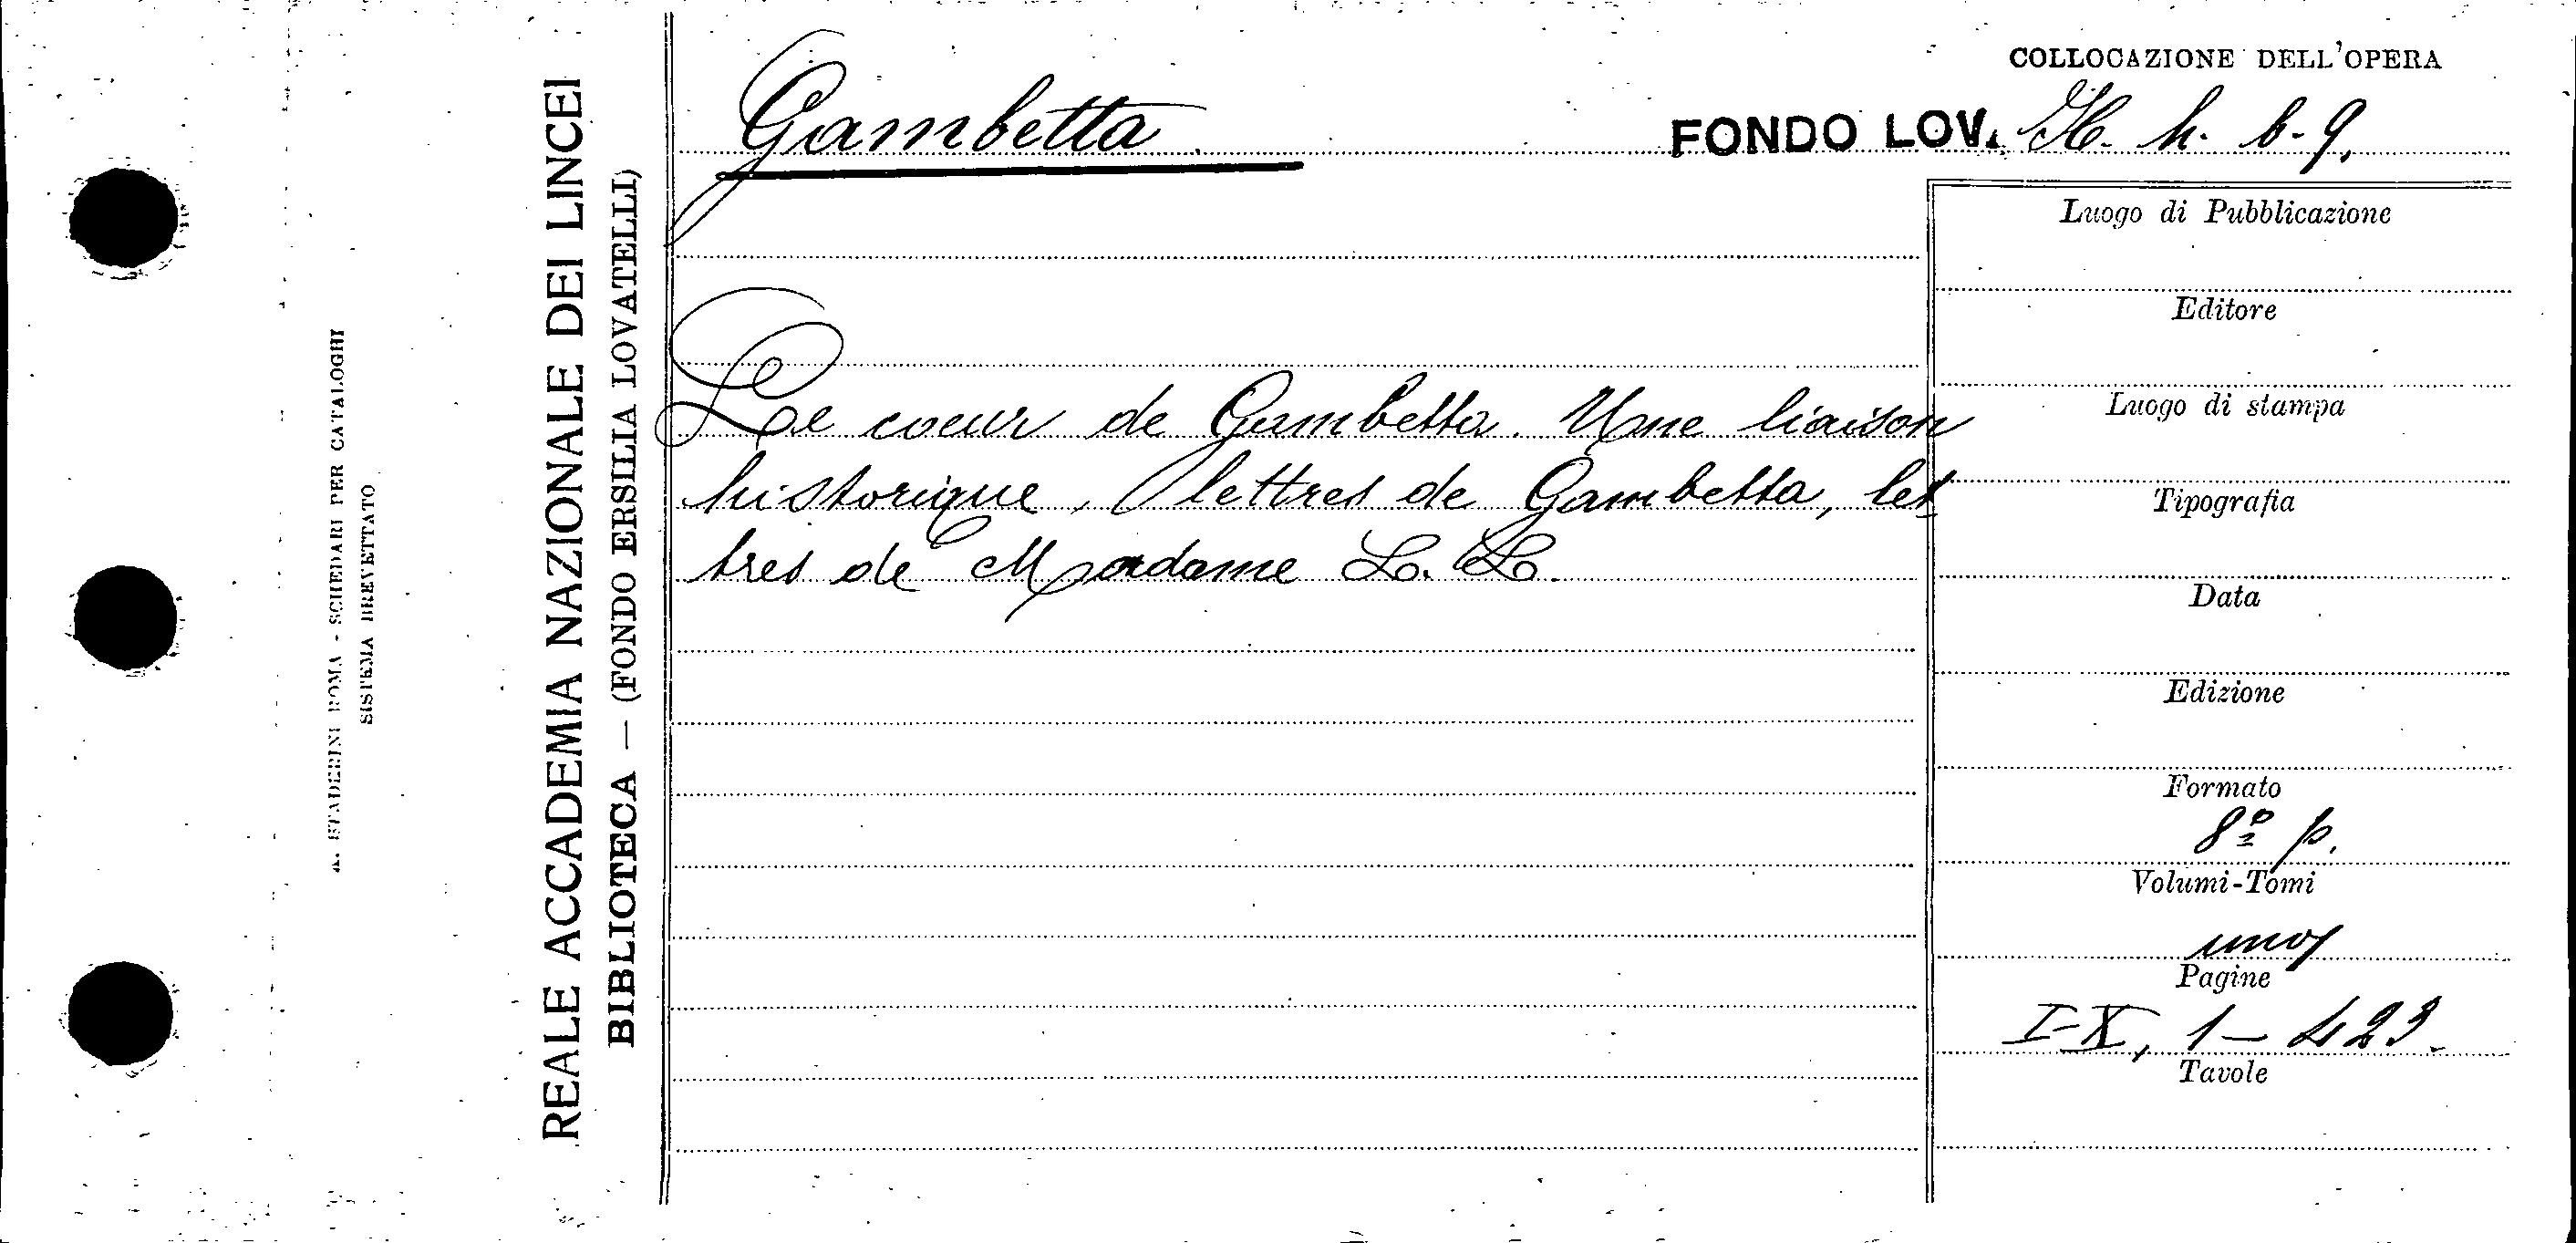 A. STADERINI ROMA - SCHEDARI PER CATALOGHI
SISTEMA BREVETTATO
REALE ACCADEMIA NAZIONALE DEI LINCEI
BIBLIOTECA — (FONDO ERSILIA LOVATELLI)
Gambetta
COLLOCAZIONE DELL'OPERA
FONDO LOV. H. h. b-9.
Le coeur de Gambetta. Une liaison
historique, lettres de Gambetta, let
tres de Madame L. L.
Luogo di Pubblicazione
Editore
Luogo di stampa
Tipografia
Data
Edizione
Formato
8º p.
Volumi-Tomi
uno
Pagine
I-X, 1-423.
Tavole